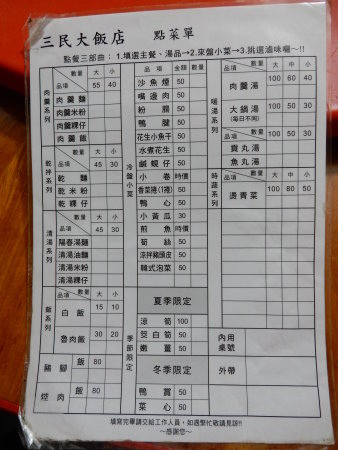 三民大飯店 點菜單
點餐三部曲：1.填選主餐、湯品→2.來盤小菜→3.挑選滷味囉~!!
肉羹系列
品項 數量 大 小
55 40
肉羹麵
肉羹米粉
肉羹粿仔
肉羹飯
乾拌系列
品項 數量 大 小
45 30
乾麵
乾米粉
乾粿仔
清湯系列
品項 數量 大 小
45 30
陽春湯麵
清湯油麵
清湯米粉
清湯粿仔
飯系列
品項 數量 大 小
白飯 15 10
魯肉飯 30 20
雞腳飯 80
焢肉飯 80
冷盤小菜
品項 金額 數量
沙魚煙 50
嘴邊肉 50
粉腸 50
鴨腱 50
花生小魚干 50
水煮花生 50
鹹蜆仔 50
小卷 時價
香菜捲(1捲) 50
鴨心 50
小黃瓜 30
煎魚 時價
筍絲 50
涼拌豬頭皮 50
韓式泡菜 50
季節限定
夏季限定
涼筍 100
筊白筍 50
嫩薑 50
冬季限定
鴨賞 50
菜心 50
暖湯系列
品項 數量 大 中 小
肉羹湯 100 60 40
大鍋湯 100 50 30
(每日不同)
貢丸湯 100 50 30
魚丸湯
時蔬系列
品項 數量 大 中 小
燙青菜 100 80 50
內用
桌號
外帶
填寫完畢請交給工作人員，如遇繁忙敬請見諒!!
~感謝您~